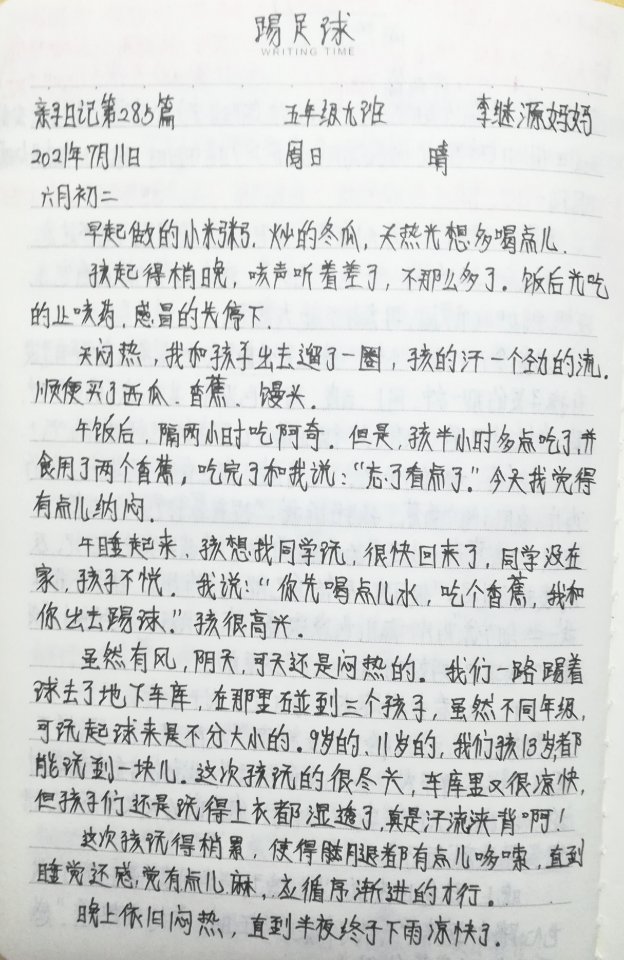 踢足球
WRITING TIME
亲子日记第285篇 五年级九班 李继源妈妈
2021年7月11日 周日 晴
六月初二
早起做的小米粥，炒的冬瓜，天热光想多喝点儿.
孩起得稍晚，咳声听着差了，不那么多了。饭后光吃
的止咳药，感冒的先停下.
天闷热，我和孩子出去遛了一圈，孩的汗一个劲的流.
顺便买了西瓜、香蕉、馒头.
午饭后，隔两小时吃阿奇。但是，孩半小时多点吃了，并
食用了两个香蕉，吃完了和我说：“忘了看点了。”今天我觉得
有点儿纳闷.
午睡起来，孩想找同学玩，很快回来了，同学没在
家，孩子不悦。我说：“你先喝点儿水，吃个香蕉，我和
你出去踢球。”孩很高兴.
虽然有风，阴天，可天还是闷热的。我们一路踢着
球去了地下车库，在那里碰到三个孩子，虽然不同年级，
可玩起球来是不分大小的。9岁的、11岁的，我们孩13岁，都
能玩到一块儿。这次孩玩的很尽兴，车库里又很凉快，
但孩子们还是玩得上衣都湿透了，真是汗流浃背啊！
这次孩玩得稍累，使得脚腿都有点儿哆嗦，直到
睡觉还感觉有点儿麻，应循序渐进的才行。
晚上依旧闷热，直到半夜终于下雨凉快了.